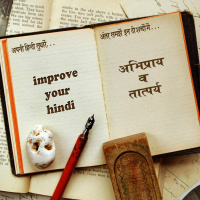 अपनी हिन्दी सुधारें...
improve
your
hindi
अंतर समझें इन दो शब्दों में...
अभिप्राय
व
तात्पर्य